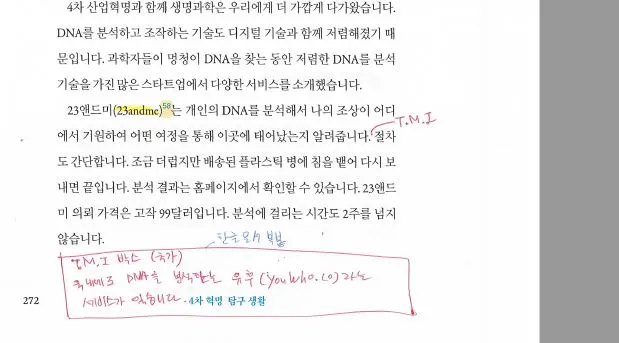 4차 산업혁명과 함께 생명과학은 우리에게 더 가깝게 다가왔습니다.
DNA를 분석하고 조작하는 기술도 디지털 기술과 함께 저렴해졌기 때
문입니다. 과학자들이 명청이 DNA을 찾는 동안 저렴한 DNA를 분석
기술을 가진 많은 스타트업에서 다양한 서비스를 소개했습니다.
23앤드미(23andme)58는 개인의 DNA를 분석해서 나의 조상이 어디
에서 기원하여 어떤 여정을 통해 이곳에 태어났는지 알려줍니다. 절차
T.M.I
도 간단합니다. 조금 더럽지만 배송된 플라스틱 병에 침을 뱉어 다시 보
내면 끝입니다. 분석 결과는 홈페이지에서 확인할 수 있습니다. 23앤드
미 의뢰 가격은 고작 99달러입니다. 분석에 걸리는 시간도 2주를 넘지
않습니다.
T.M.I 박스 (추가)
국내에도 DNA를 분석하는 유후(youwho.co)라는
서비스가 있습니다
272
· 4차 혁명 탐구 생활